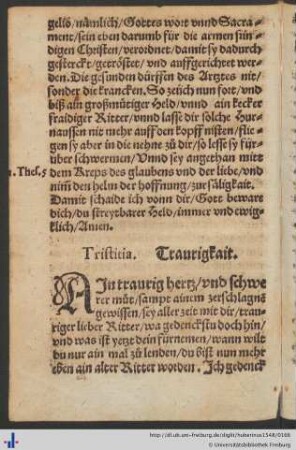 gelis/nämlich/Gottes wort vnnd Sacra-
ment/sein eben darumb für die armen sün-
digen Christen/verordnet/damit sy dadurch
gesterckt/getröstet/vnd auffgerichtet wer-
den. Die gesunden dürffen des Artztes nit/
sonder die krancken. So zeüch nun fort/vnd
biß ain großmütiger Held/vnnd ain kecker
fraidiger Ritter/vnnd lasse dir solche Hur-
naussen nit mehr auff den kopff nisten/flie-
gen sy aber in die nehne zů dir/so lesse sy für-
über schwermen/Vnnd sey angethan mitt
1. Thes. 5 dem Kreps des glaubens vnd der liebe/vnd
nim̃ den helm der hoffnung/zur säligkait.
Damit schaide ich vonn dir/Gott beware
dich/du streytbarer Held/immer vnd ewig-
klich/Amen.
Tristitia. Traurigkait.
AIn traurig hertz/vnd schwe
rer můt/sampt ainem zerschlagnẽ
gewissen/sey aller zeit mit dir/trau-
riger lieber Ritter/wa gedenckstu doch hin/
vnd was ist yetzt dein fürnemen/wann wilt
du nur ain mal zů lenden/du bist nun mehr
eben ain alter Ritter worden. Ich gedenck
http://dl.ub.uni-freiburg.de/diglit/haberinus1548/0168
© Universitätsbibliothek Freiburg